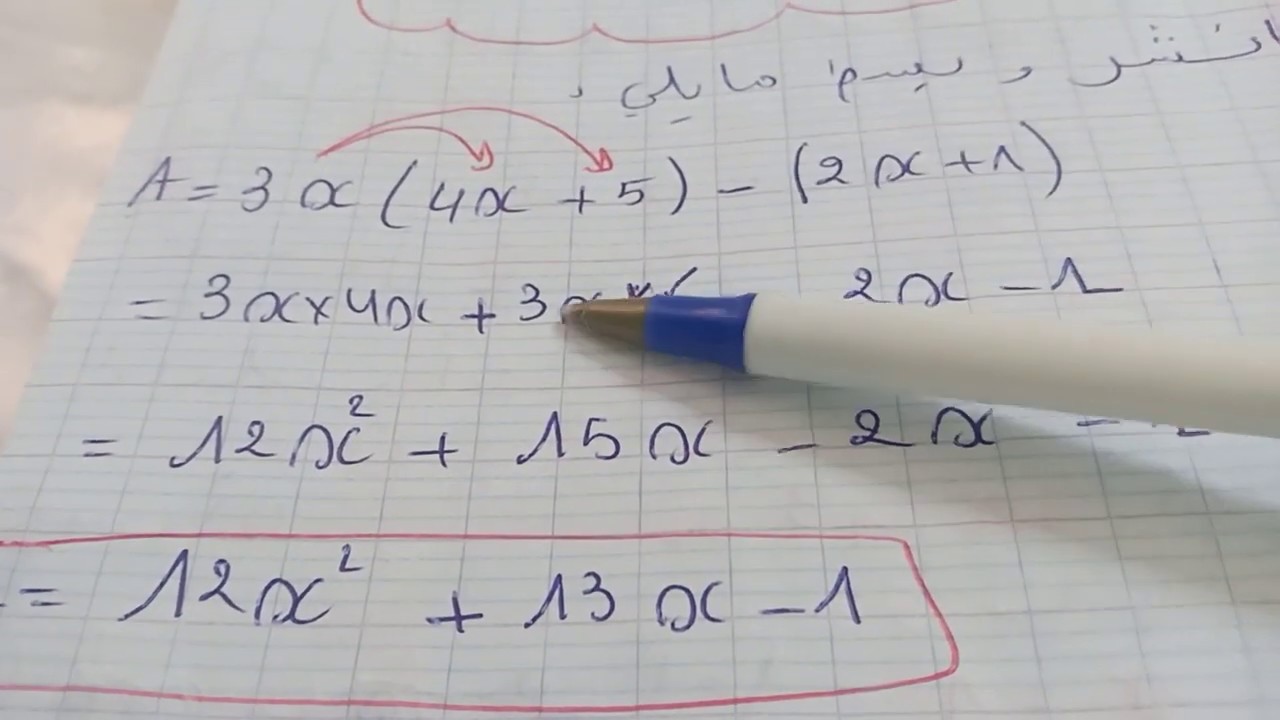 انشر و بسم مايلي ،
A = 3x (4x + 5) - (2x + 1)
= 3x × 4x + 3x 2x - 1
= 12x² + 15x - 2x -
= 12x² + 13x - 1